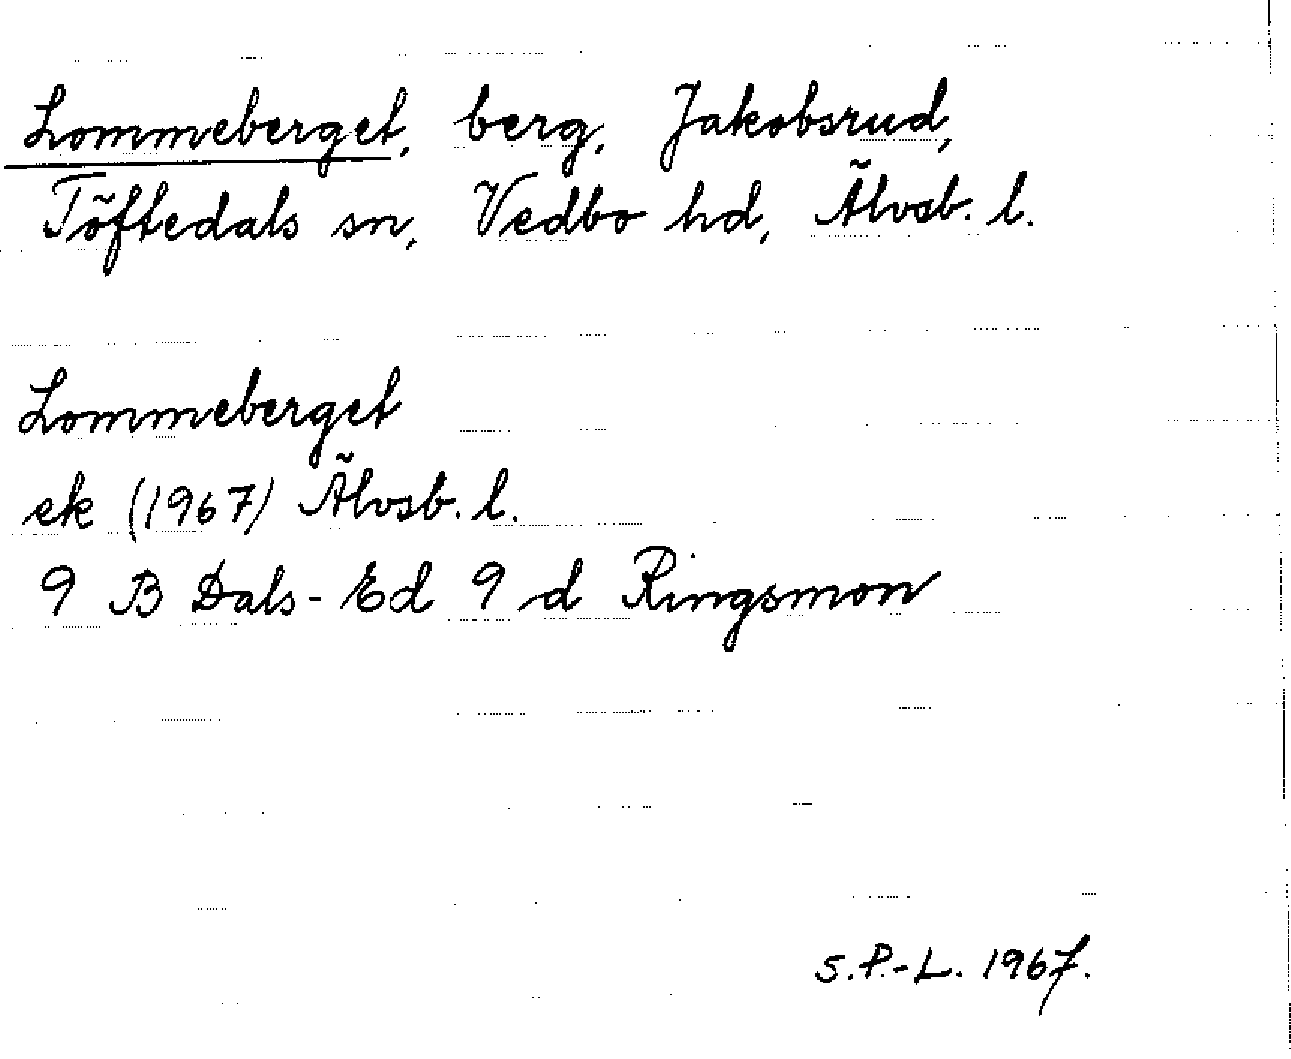 Lommeberget, berg, Jakobsrud,
Töftedals sn, Vedbo hd, Älvsb. l.
Lommeberget
ek (1967) Älvsb. l.
9 B Dals-Ed 9 d Ringsmon
S.P.-L. 1967.